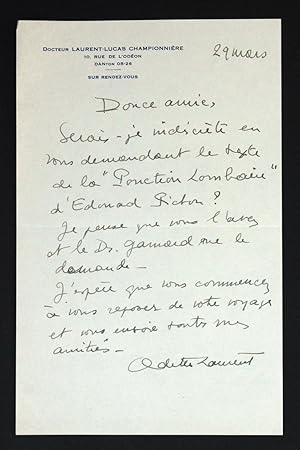 DOCTEUR LAURENT-LUCAS CHAMPIONNIÈRE
10, RUE DE L'ODÉON
DANTON 05-26
SUR RENDEZ-VOUS
29 mars
Douce amie,
Serais-je indiscrète en
vous demandant le texte
de la "Ponction Lombaire"
d'Edouard Pichon ?
Je pense que vous l'avez
et le Dr. me le
demande -
J'espère que vous commencez
à vous reposer de votre voyage
et vous envoie toutes mes
amitiés -
Odette Laurent